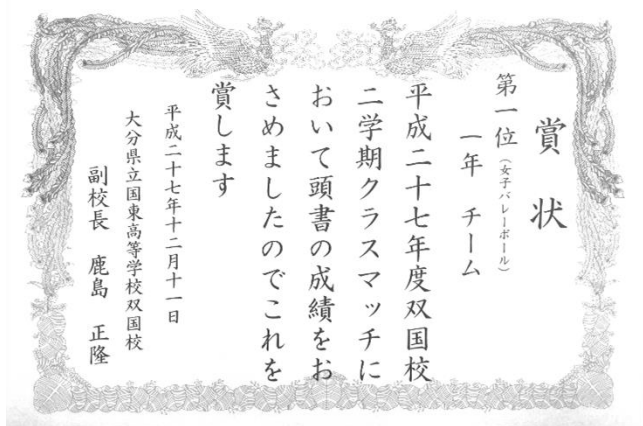 賞状
第一位（女子バレーボール）
一年 チーム
平成二十七年度双国校
二学期クラスマッチに
おいて頭書の成績をお
さめましたのでこれを
賞します
平成二十七年十二月十一日
大分県立国東高等学校双国校
副校長 鹿島 正隆